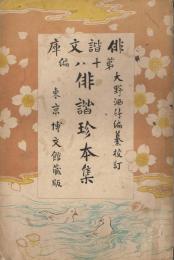 俳諧文庫
第十八編
大野洒竹編纂校訂
俳諧珍本集
東京博文館藏版